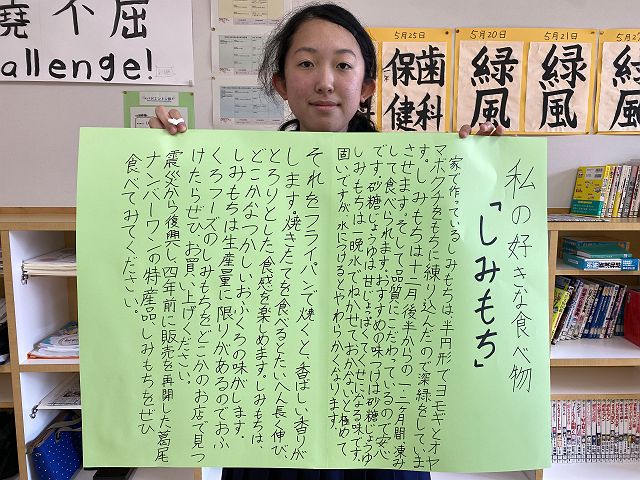 堯不屈
hallenge!
5月25日
歯科
保健
5月20日
緑風
5月21日
緑風
5月2
私の好きな食べ物
「しみもち」
家で作っているしみもちは半円形でヨモギとオヤ
マボクチをもちに練り込んだので深緑をしていま
す。しみもちは十二月後半からの一、二ヶ月間凍み
させます。そして品質にこだわっているので安心
して食べられます。おすすめの味つけは砂糖じょうゆ
です。砂糖じょうゆは甘じょっぱくてくせになる味です。
しみもちは一晩水でねかせておかないと極めて
固いですが、水につけるとやわらかくなります。
それをフライパンで焼くと、香ばしい香りが
します。焼きたてを食べるとたいへん長く伸び、
とろりとした食感を楽めます。しみもちは、
どこかなつかしいおふくろの味がします。
しみもちは生産量に限りがあるのでおふ
くろフーズのしみもちをどこかのお店で見つ
けたらぜひお買い上げください。
震災から復興し四年前に販売を再開した葛尾
ナンバーワンの特産品しみもちをぜひ
食べてみてください。